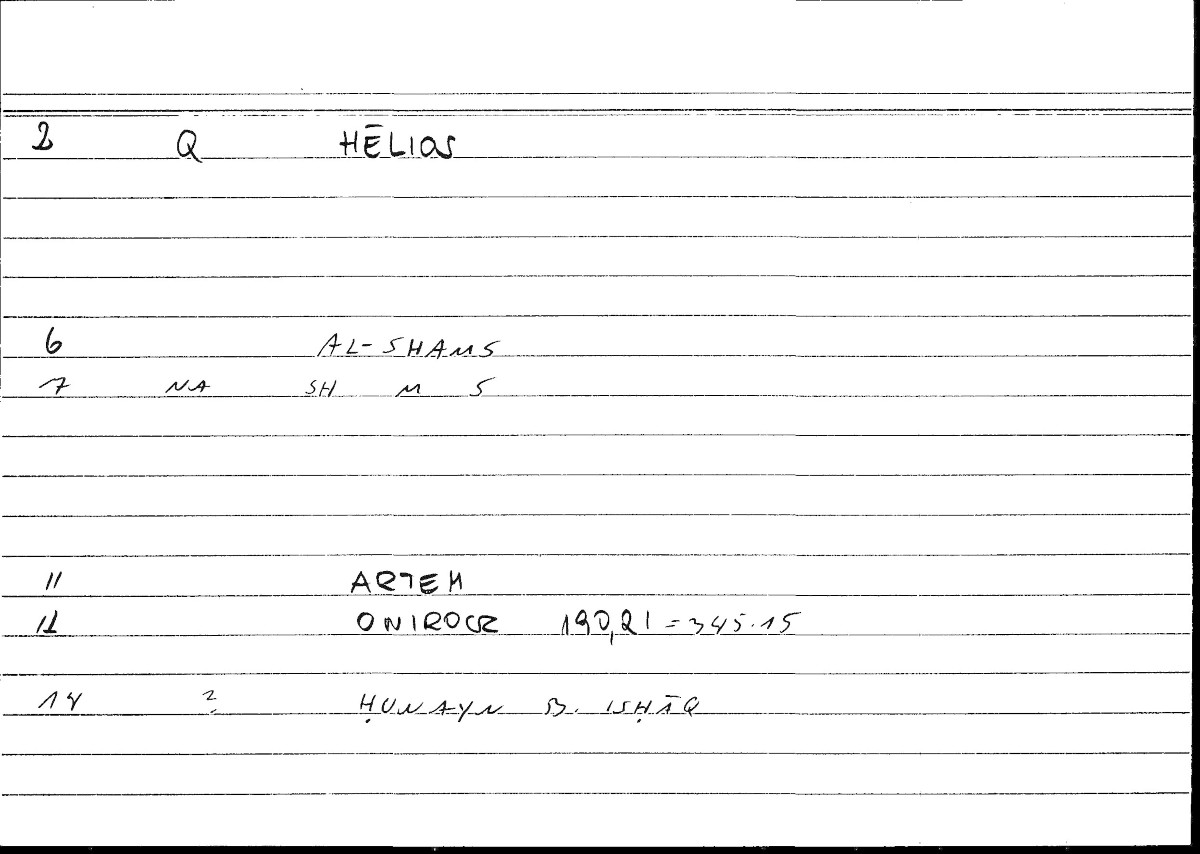 2 Q HĒLIOS
6 AL-SHAMS
7 NA SH M S
11 ARTEM
12 ONIROCR 190,21 = 345.15
14 ? ḤUNAYN B. ISḤĀQ